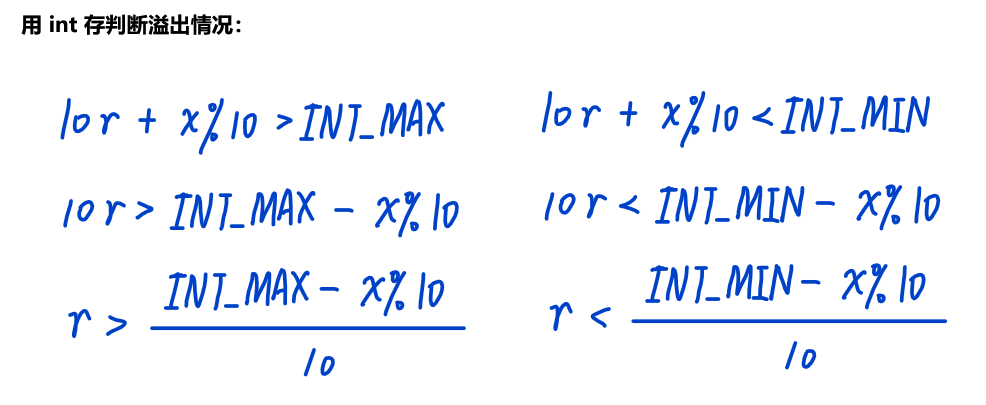 用 int 存判断溢出情况：
10r + x%10 > INT_MAX
10r > INT_MAX - x%10
r > INT_MAX - x%10
10
10r + x%10 < INT_MIN
10r < INT_MIN - x%10
r < INT_MIN - x%10
10